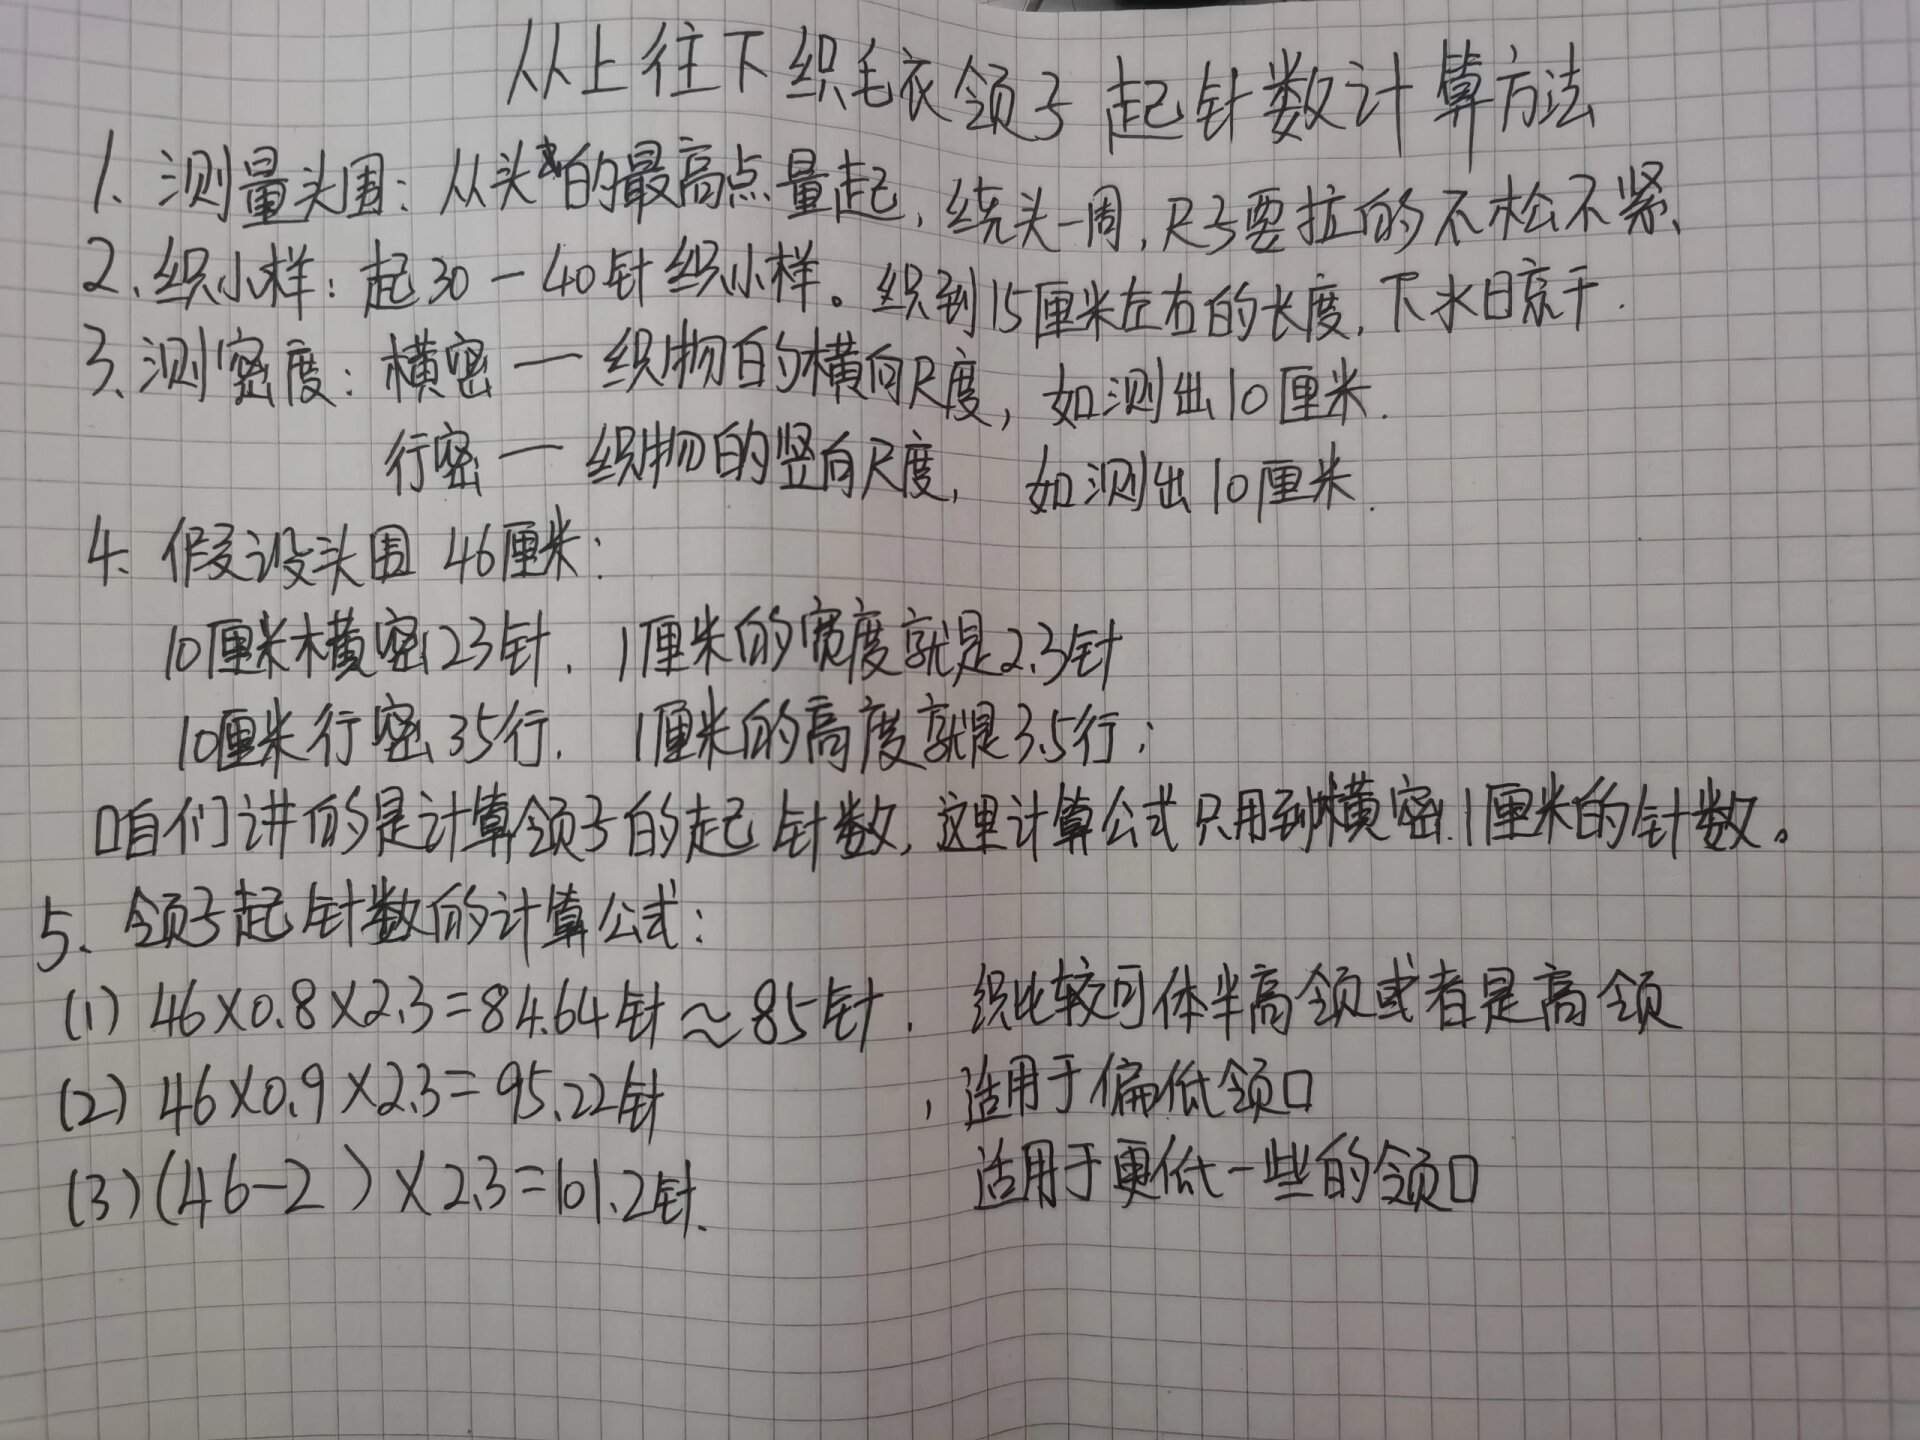 从上往下织毛衣领子起针数计算方法
1、测量头围：从头的最高点量起，绕头一周，尺子要拉的不松不紧、
2、织小样：起30－40针织小样。织到15厘米左右的长度，下水晾干.
3、测密度：横密一织物的横向尺度，如测出10厘米.
行密一织物的竖向尺度，如测出10厘米.
4、假设头围46厘米：
10厘米横密23针.1厘米的宽度就是2.3针
10厘米行密35行.1厘米的高度就是3.5行；
咱们讲的是计算领子的起针数,这里计算公式只用到横密.1厘米的针数。
5、领子起针数的计算公式：
(1) 46×0.8×2.3=84.64针≈85针.织比较可体半高领或者是高领
(2) 46×0.9×2.3=95.22针，适用于偏低领口
(3)(46-2)×2.3=101.2针.适用于更低一些的领口